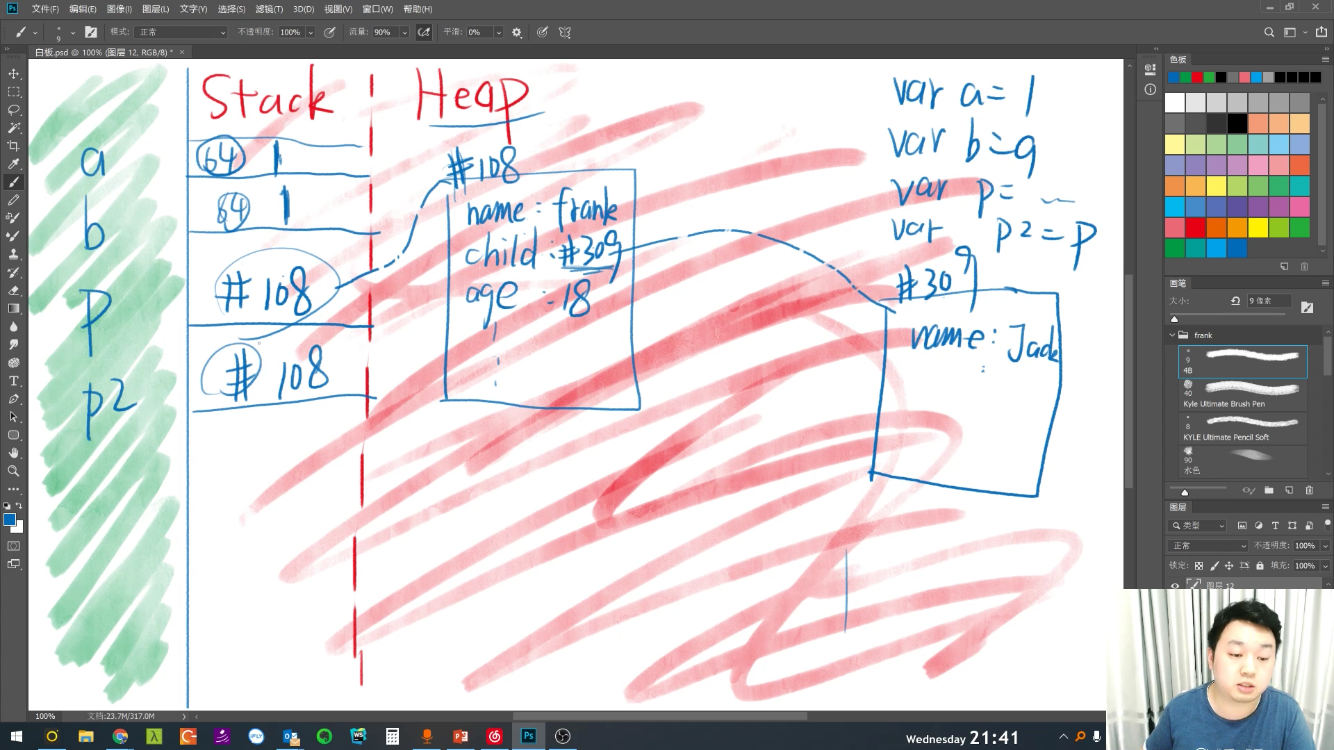 文件(F) 编辑(E) 图像(I) 图层(L) 文字(Y) 选择(S) 滤镜(T) 3D(D) 视图(V) 窗口(W) 帮助(H)
9 模式: 正常 不透明度: 100% 流量: 90% 平滑: 0%
白板.psd @ 100% (图层 12, RGB/8) *
Stack Heap
a 64 1
b 64 1
p #108
p2 #108
#108
name: frank
child: #309
age: 18
var a=1
var b=a
var p=
var p2=p
#309
name: Jade
色板
画笔
大小: 9 像素
frank
9
4B
40
Kyle Ultimate Brush Pen
8
KYLE Ultimate Pencil Soft
90
水色
图层
类型
正常 不透明度: 100%
锁定: 填充: 100%
图层 12
100% 文档:23.7M/317.0M
Wednesday 21:41